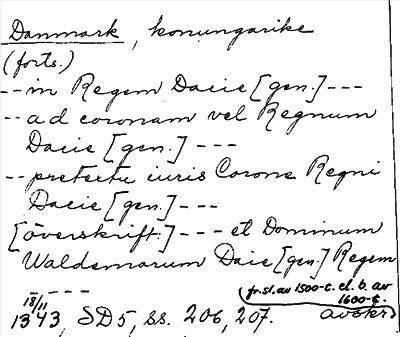 Danmark, konungarike
(forts.)
-- in Regem Dacie [gen.] ---
-- ad coronam vel Regnum
Dacie [gen.] ---
-- pretextu iuris Corone Regni
Dacie [gen.] ---
[överskrift:] --- et Dominum
Waldemarum Dacie [gen.] Regem
---
(fr. sl. av 1500-t. el. b. av
1600-t.
18/11
1343, SD5, ss. 206, 207. avskr.)